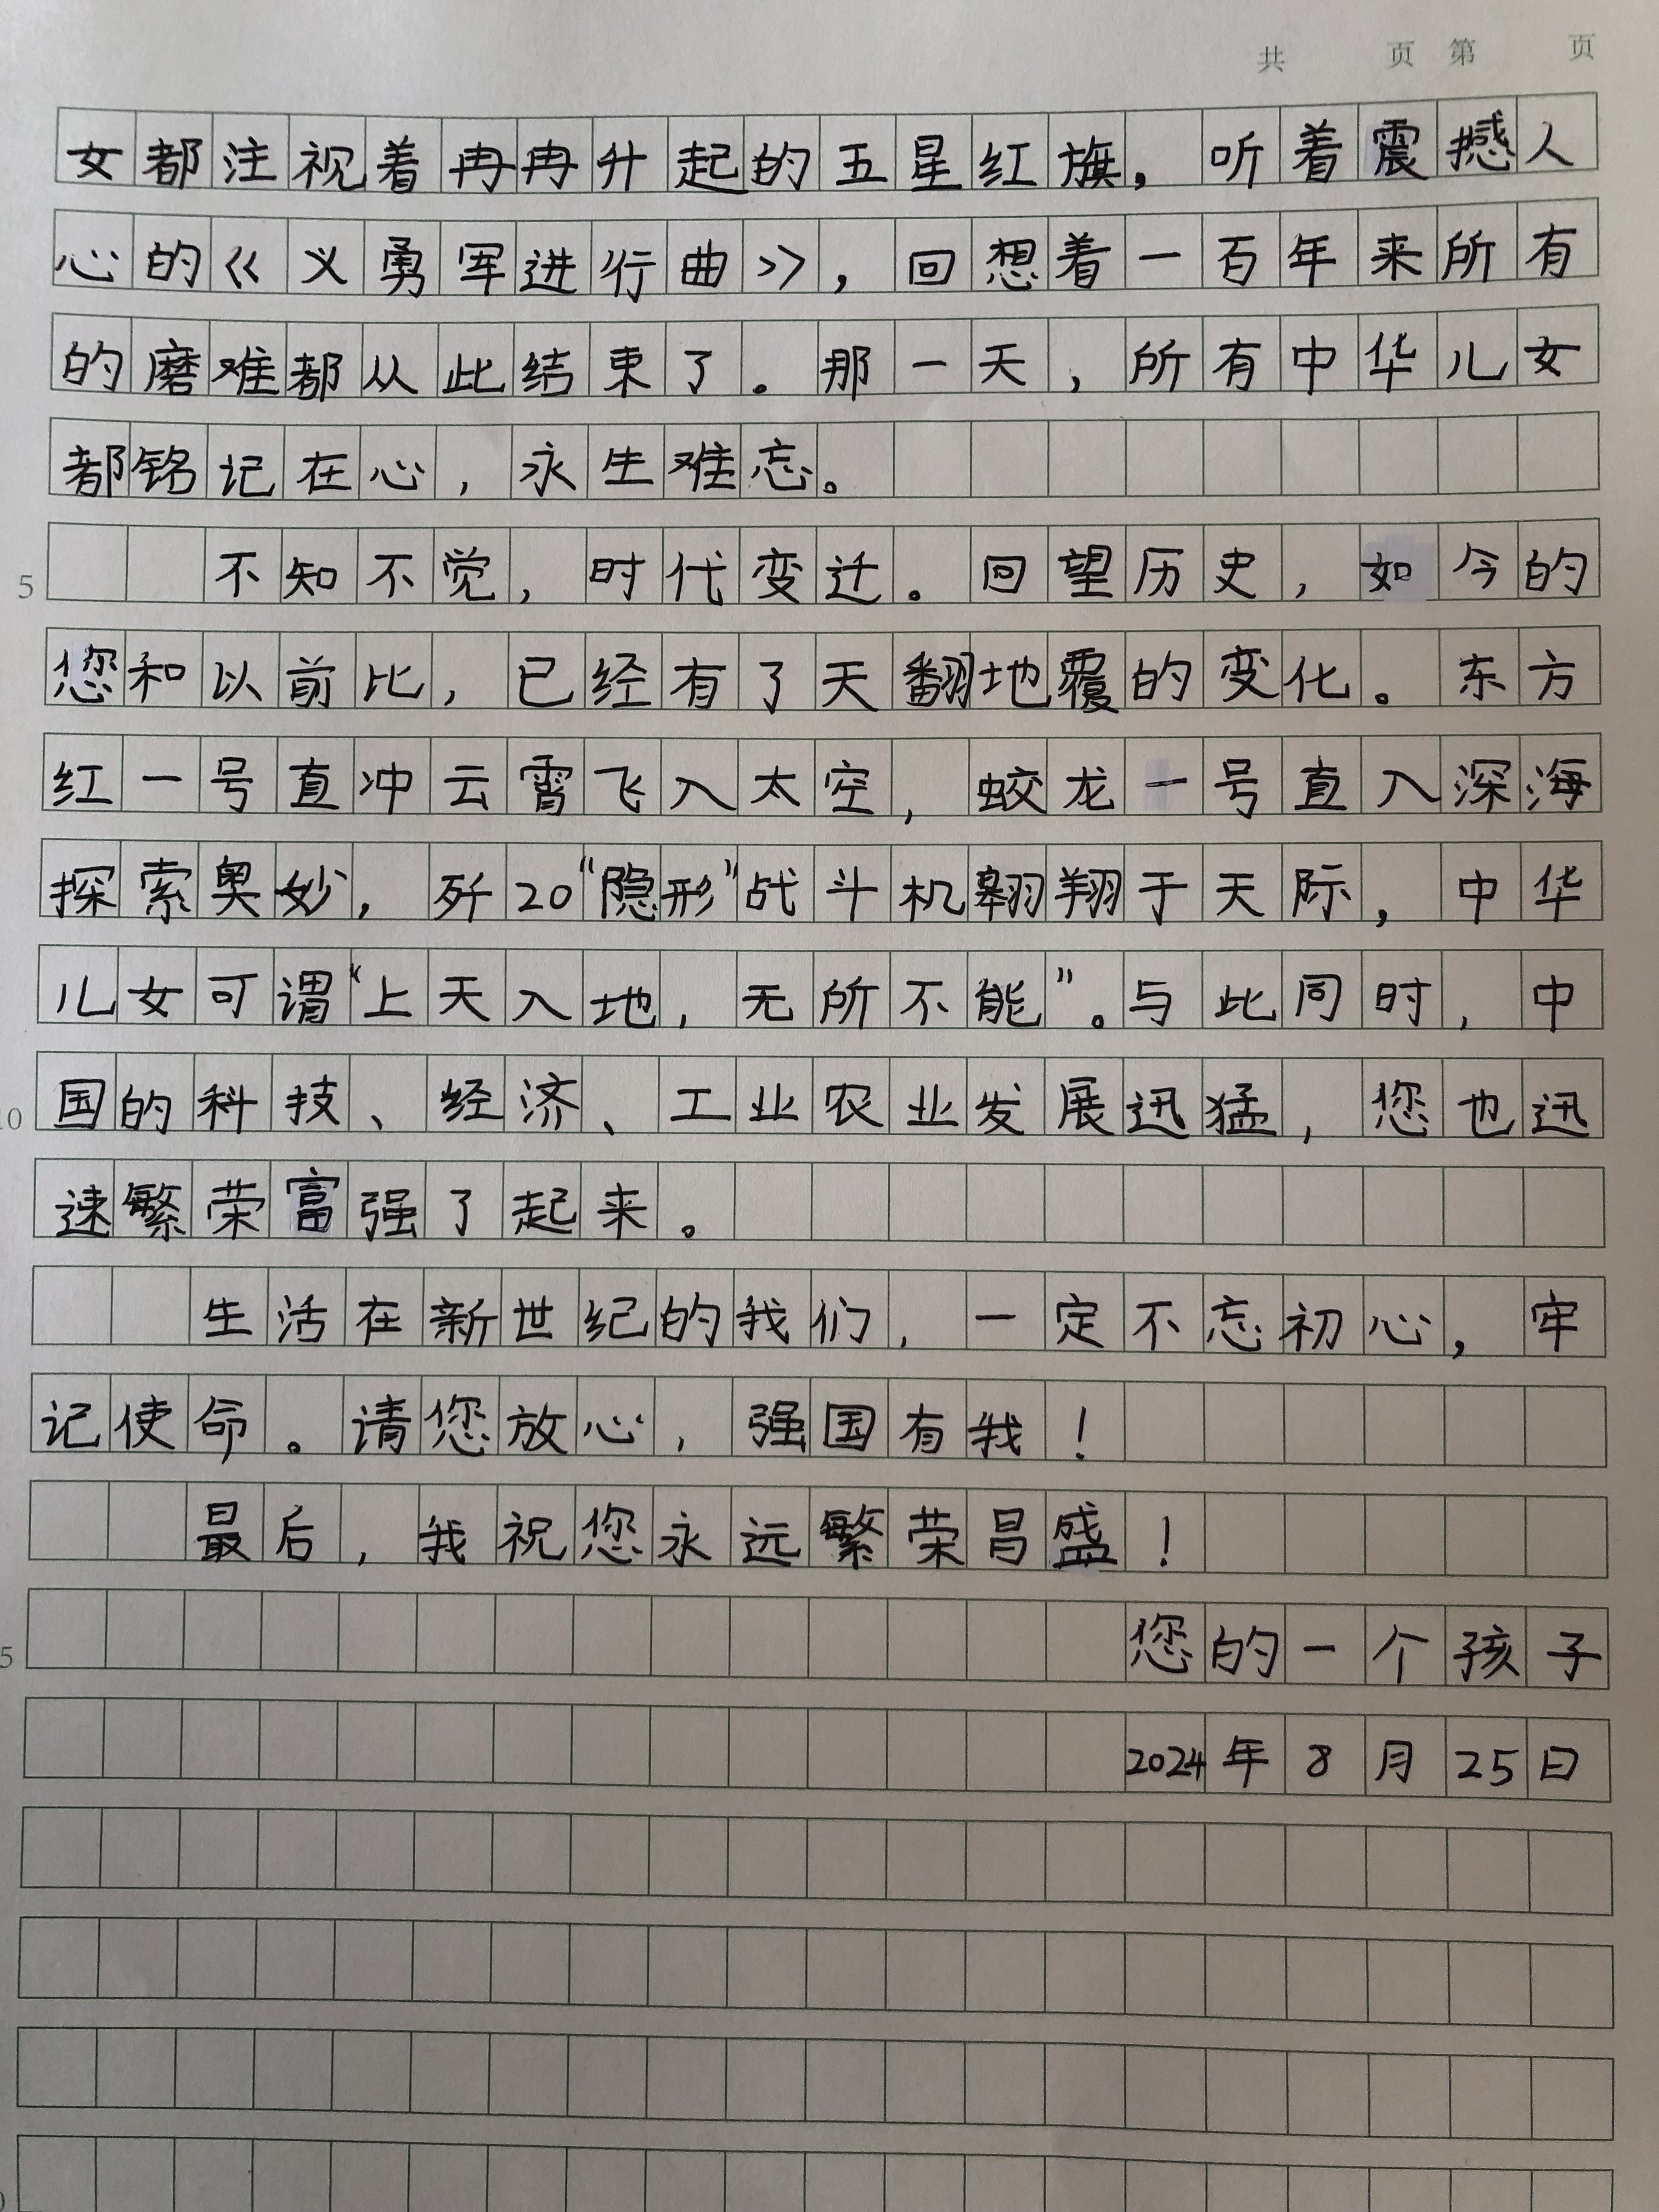 共 页 第 页
女都注视着冉冉升起的五星红旗，听着震撼人
心的《义勇军进行曲》，回想着一百年来所有
的磨难都从此结束了。那一天，所有中华儿女
都铭记在心，永生难忘。
5 不知不觉，时代变迁。回望历史，如今的
您和以前比，已经有了天翻地覆的变化。东方
红一号直冲云霄飞入太空，蛟龙一号直入深海
探索奥妙，歼20“隐形”战斗机翱翔于天际，中华
儿女可谓“上天入地，无所不能”。与此同时，中
10 国的科技、经济、工业农业发展迅猛，您也迅
速繁荣富强了起来。
生活在新世纪的我们，一定不忘初心，牢
记使命。请您放心，强国有我！
最后，我祝您永远繁荣昌盛！
5 您的一个孩子
2024年8月25日